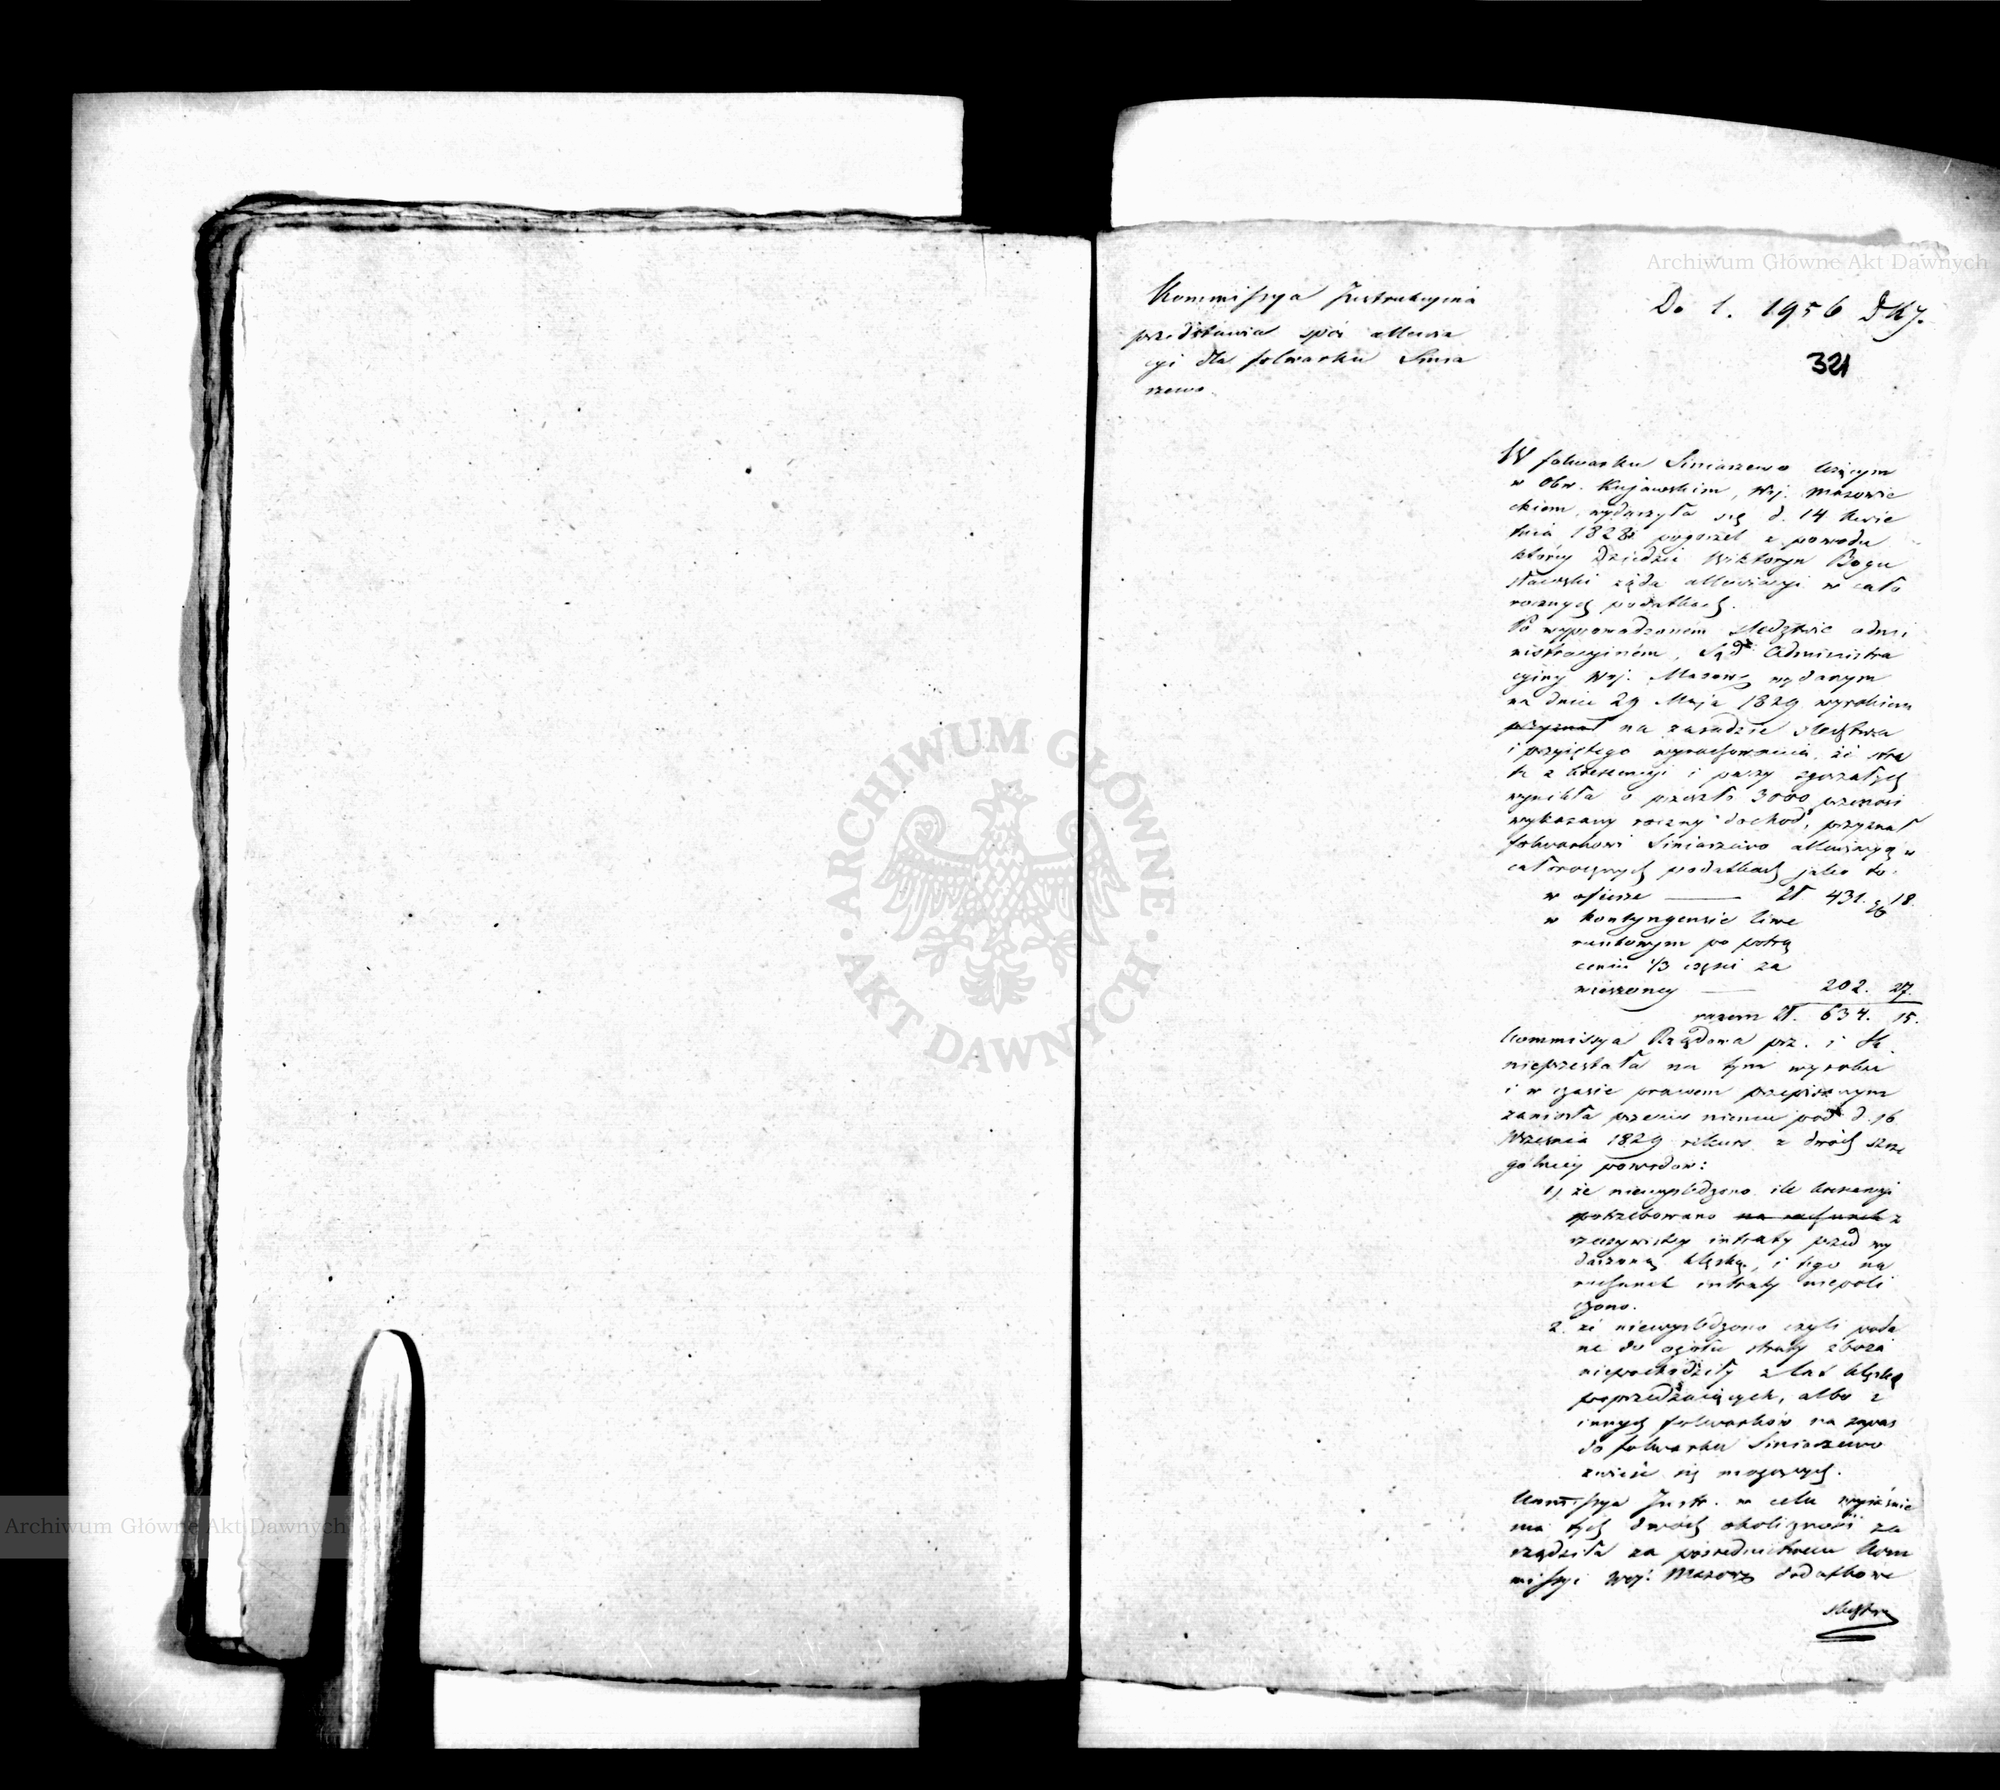 Kommissya Instrukcyina
przedstawia spór allewia
cyi dla folwarku Sinia
rzewo.
Do l. 1956 DKJ.
321
W folwarku Siniarzewo leżącym
w Obw. Kujawskim, Wej. Mazowie
ckiem, wydarzyła się d. 14 Kwie
tnia 1828 pogorzel z powodu
którey Dziedzic Wiktoryn Bogu
sławski żąda allewiacyi w cało
rocznych podatkach.
Po wyprowadzonem śledztwie admi
nistracyiném, Sąd Administra
cyiny Woj. Mazow. wydanym
na dniu 29 Maja 1829 wyrokiem
przyznał na zasadzie śledztwa
i przyiętego wyrachowania, że stra
ta z krescencyi i paszy zgorzałych
wynikła o przeszło 3000 przenosi
wykazany roczny dochód, przyznał
folwarkowi Siniarzewo allewiacyą w
całorocznych podatkach jako to:
w ofierze Zł 431. gr 18.
w kontyngensie liwe
runkowym po potrą
ceniu 1/3 części za
wieszoney 202. 27.
razem Zł. 634. 15.
Kommissya Rządowa prz. i Sk.
nieprzestała na tym wyroku
i w czasie prawem przepisanym
zaniosła przeciw niemu pod d. 16
Września 1829 rekurs z dwóch szcze
gólniey powodów:
1) że niewyśledzono ile krescencyi
potrzebowano na rachunek z
rzeczywistey intraty przed wy
darzoną klęską, i tego na
rachunek intraty niepoli
czono.
2. że niewyśledzono czyli poda
ne do ogółu straty zboża
niepochodziły z lat klęskę
poprzedzaiących, albo z
innych folwarków na zapas
do folwarku Siniarzewo
zwieść się mogących.
Kommissya Instr. w celu wyiaśnie
nia tych dwóch okoliczności za
rządziła za pośrednictwem Kom
missyi Woj. Mazow. dodatkowe
śledztwo
Archiwum Główne Akt Dawnych
Archiwum Główne Akt Dawnych
ARCHIWUM GŁÓWNE
AKT DAWNYCH